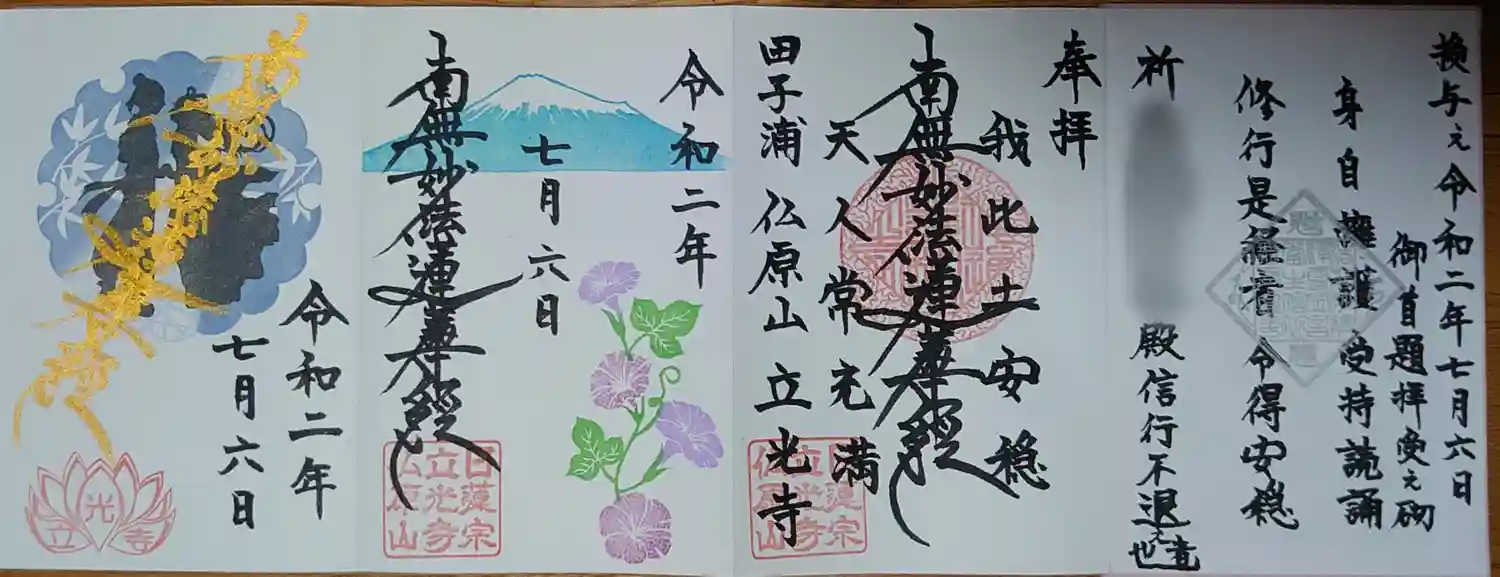 授与之 令和二年七月六日
御首題拝受之砌
身自擁護受持読誦
修行是経者令得安穏
祈
殿信行不退之也
奉拝
我此土安穏
南無妙法蓮華経
天人常充満
田子浦 仏原山 立光寺
日蓮宗
立光寺
仏原山
令和二年
七月六日
南無妙法蓮華経
日蓮宗
立光寺
仏原山
南無妙法蓮華経
令和二年
七月六日
立光寺